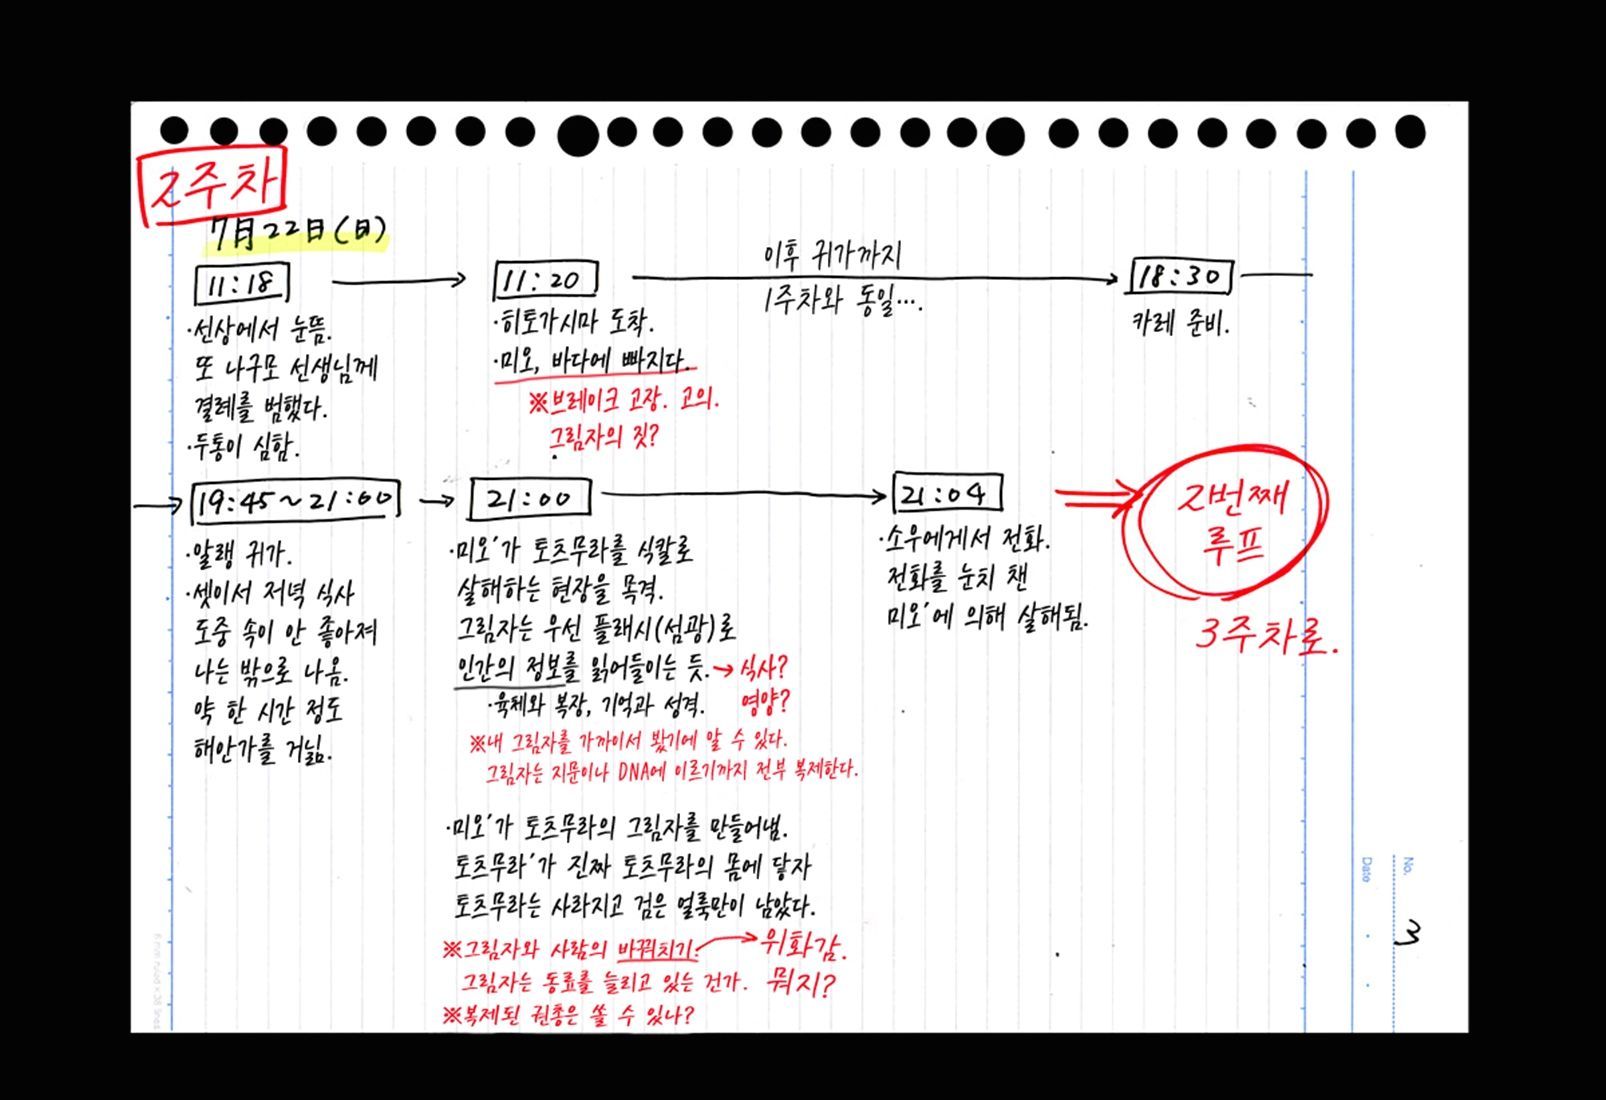 2주차
7月22日(日)
11:18
·선상에서 눈뜸.
또 나구모 선생님께
결례를 범했다.
·두통이 심함.
11:20
·히토가시마 도착.
·미오, 바다에 빠지다.
※브레이크 고장. 고의.
그림자의 짓?
이후 귀가까지
1주차와 동일...
18:30
카레 준비.
19:45~21:00
·알랭 귀가.
·셋이서 저녁 식사
도중 속이 안 좋아져
나는 밖으로 나옴.
약 한 시간 정도
해안가를 거닒.
21:00
·미오'가 토츠무라를 식칼로
살해하는 현장을 목격.
그림자는 우선 플래시(섬광)로
인간의 정보를 읽어들이는 듯. → 식사?
·육체와 복장, 기억과 성격. 영양?
※내 그림자를 가까이서 봤기에 알 수 있다.
그림자는 지문이나 DNA에 이르기까지 전부 복제한다.
·미오'가 토츠무라의 그림자를 만들어냄.
토츠무라'가 진짜 토츠무라의 몸에 닿자
토츠무라는 사라지고 검은 얼룩만이 남았다.
※그림자와 사람의 바꿔치기? → 위화감.
그림자는 동료를 늘리고 있는 건가. 뭐지?
※복제된 권총은 쏠 수 있나?
21:04
·소우에게서 전화.
전화를 눈치 챈
미오'에 의해 살해됨.
2번째
루프
3주차로.
No.
Date
3